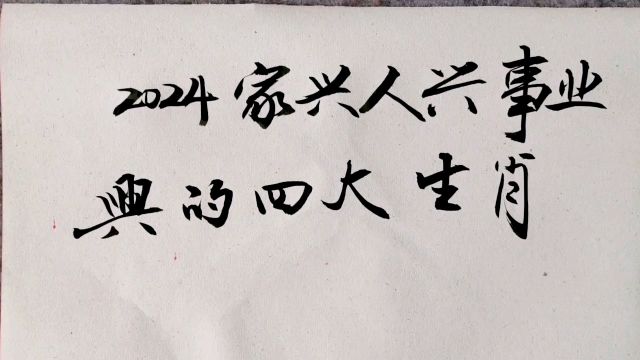 2024家兴人兴事业
興的四大生肖